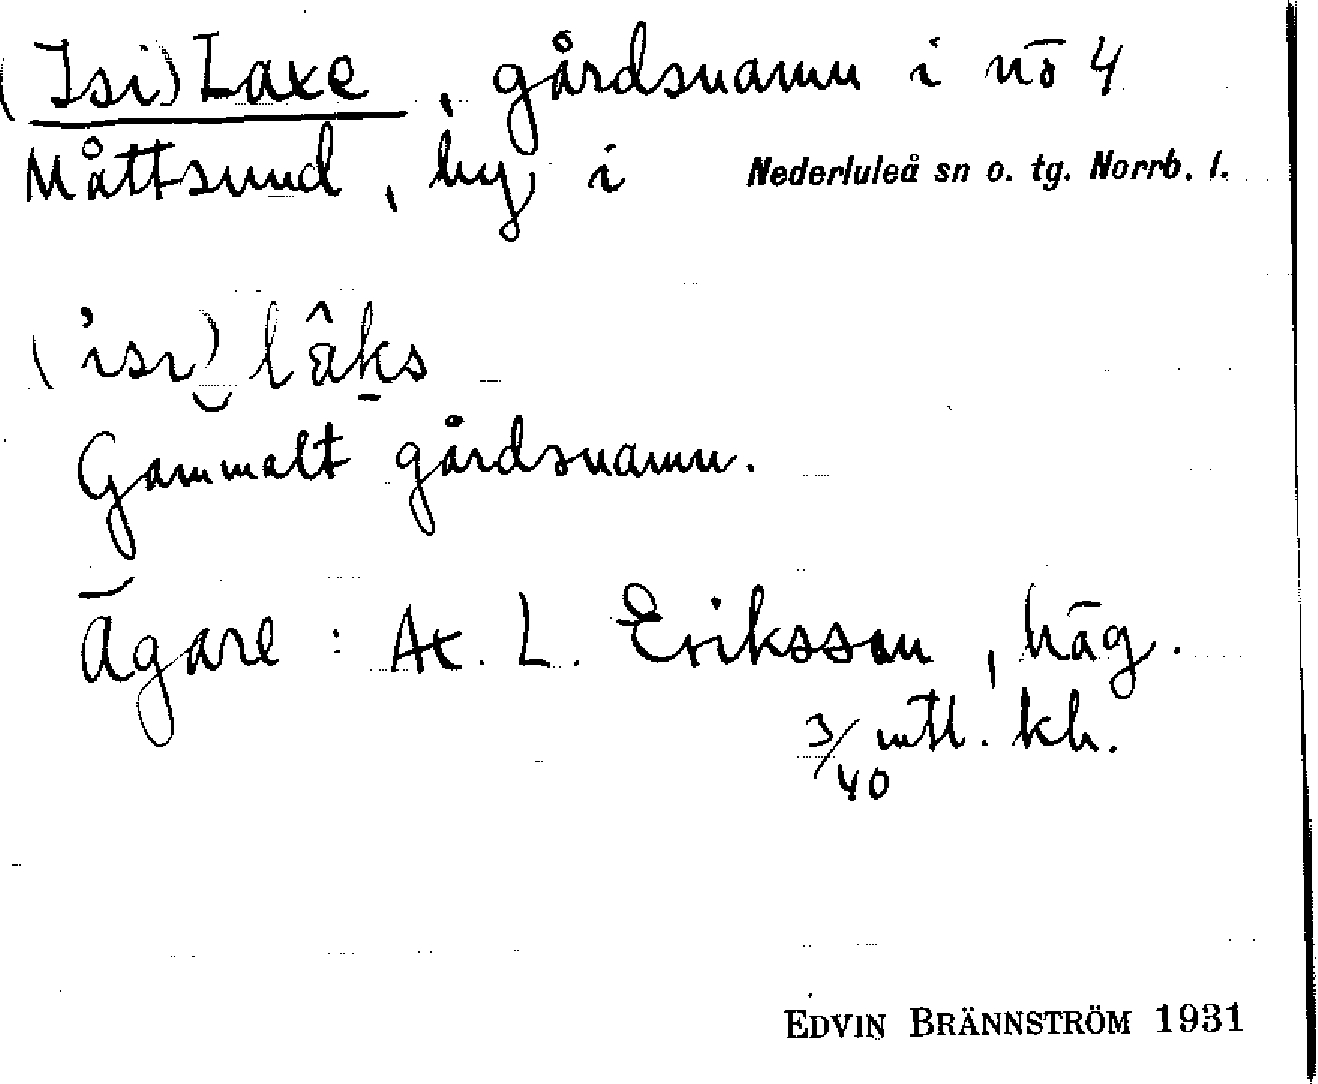 (Isi)Laxe, gårdsnamn i nō 4
Måttsund, by i Nederluleå sn o. tg. Norrb. l.
('isı) lâks
Gammalt gårdsnamn.
Ägare: A. L. Eriksson, häg.
3/40 mtl. kh.
EDVIN BRÄNNSTRÖM 1931